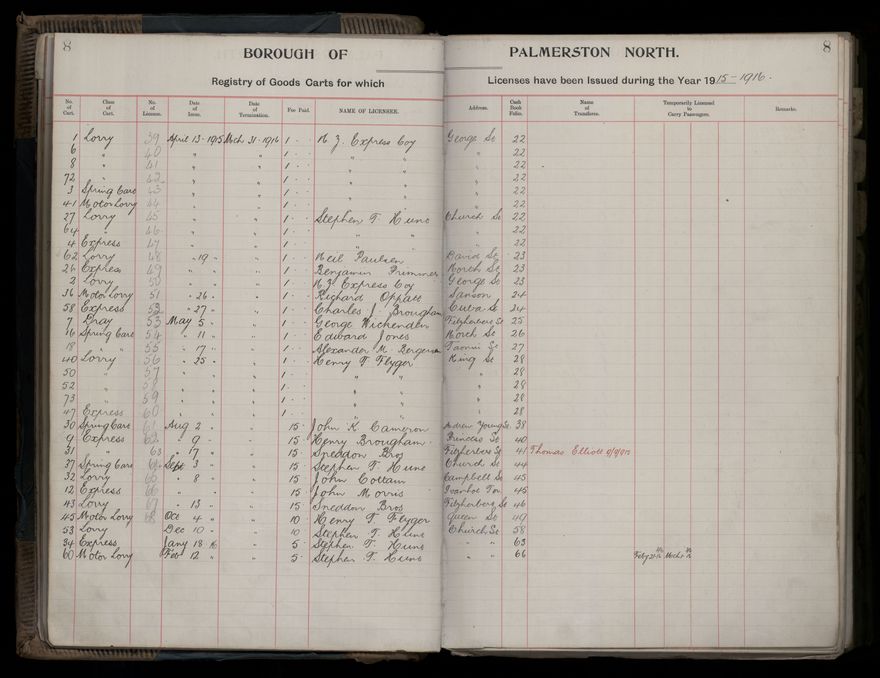 8 BOROUGH OF PALMERSTON NORTH. 8
Registry of Goods Carts for which Licenses have been Issued during the Year 1915-1916.
No. of Cart. Class of Cart. No. of License. Date of Issue. Date of Termination. Fee Paid. NAME OF LICENSEE. Address. Cash Book Folio. Name of Transferee. Temporarily Licensed to Carry Passengers. Remarks.
1 Lorry 39 April 13-1915 Mch 31-1916 1 - - N Z. Express Coy George St 22
6 " 40 " " 1 - - " " " 22
8 " 41 " " 1 - - " " " 22
72 " 42 " " 1 - - " " " 22
3 Spring Cart 43 " " 1 - - " " " 22
41 Motor Lorry 44 " " 1 - - " " " 22
27 Lorry 45 " " 1 - - Stephen T. Hunt Church St 22
64 " 46 " " 1 - - " " " 22
4 Express 47 " " 1 - - " " " 22
62 Lorry 48 " 19 " " 1 - - Neil Paulsen David St 23
26 Express 49 " " " 1 - - Benjamin Primmer North St 23
2 Lorry 50 " " " 1 - - N Z. Express Coy George St 23
36 Motor Lorry 51 " 26 " " 1 - - Richard Oppatt Sanson 24
58 Express 52 " 27 " " 1 - - Charles J. Brougham Cuba St 24
7 Dray 53 May 5 " " 1 - - George Wickenden Fitzherbert St 25
16 Spring Cart 54 " 11 " " 1 - - Edward Jones North St 26
18 " " 55 " 17 " " 1 - - Alexander M Bergersen 27
40 Lorry 56 " 25 " " 1 - - Henry F Flyger King St 28
50 " 57 " " 1 - - " " " 28
52 " 58 " " 1 - - " " " 28
73 " 59 " " 1 - - " " " 28
47 Express 60 " " 1 - - " " " 28
30 Spring Cart 61 Aug 2 " " 15 - John K Cameron Andrew Young St 38
9 Express 62 " 9 " " 15 - Henry Brougham Princess St 40
31 " 63 " 17 " " 15 Sneddon Bros Fitzherbert St 41 Thomas Elliott
37 Spring Cart 64 Sept 3 " " 15 Stephen T. Hunt Church St 44
32 Lorry 65 " 8 " " 15 John Cottam Campbell St 45
12 Express 66 " " " 15 John Morris Ivanhoe Tce 45
43 Lorry 67 " 13 " " 15 Sneddon Bros Fitzherbert St 46
45 Motor Lorry 68 Oct 4 " " 10 Henry F Flyger Queen St 49
53 Lorry Dec 10 " " 10 Stephen T. Hunt Church St 58
34 Express Jany 18-16 " 5 - Stephen T. Hunt " " 63
60 Motor Lorry Feb 12 " " 5 - Stephen T. Hunt " " 66